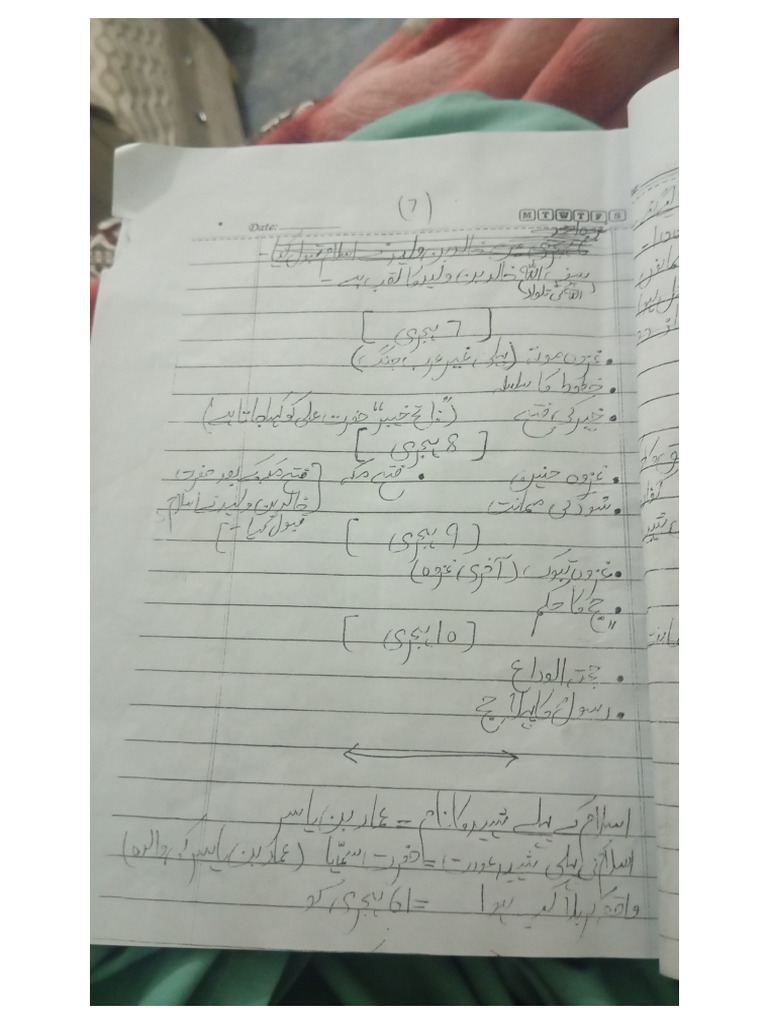 (7)
M T W T F S
Date:
سیف اللہ خالد بن ولید کا لقب ہے -
(اللہ کی تلوار)
[ 7 ہجری ]
• غزوہ موتہ (پہلی غیر عرب جنگ)
• خطوط کا سلسلہ
• خیبر کی فتح ("فاتح خیبر" حضرت علی کو کہا جاتا ہے)
[ 8 ہجری ]
• غزوہ حنین • فتح مکہ [فتح مکہ کے بعد حضرت
• سود کی ممانت خالد بن ولید نے اسلام
قبول کیا -]
[ 9 ہجری ]
• غزوہ تبوک (آخری غزوہ)
• حج کا حکم
[ 10 ہجری ]
• حجتہ الوداع
• رسولؐ کا پہلا حج
اسلام کے پہلے شہید کا نام = عمار بن یاسر
اسلام کی پہلی شہید عورت = حضرت سمّیا (عمار بن یاسر کی والدہ)
واقعہ کربلا کب ہوا = 61 ہجری کو